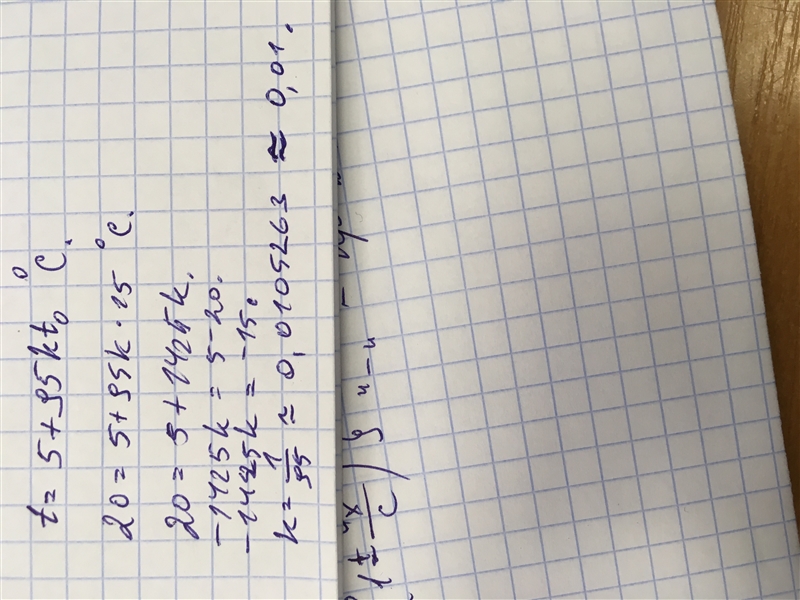 t = 5 + 95kt₀ °C.
20 = 5 + 95k · 15 °C.
20 = 5 + 1425k.
-1425k = 5 - 20.
-1425k = -15.
k = 1/95 ≈ 0,0105263 ≈ 0,01.